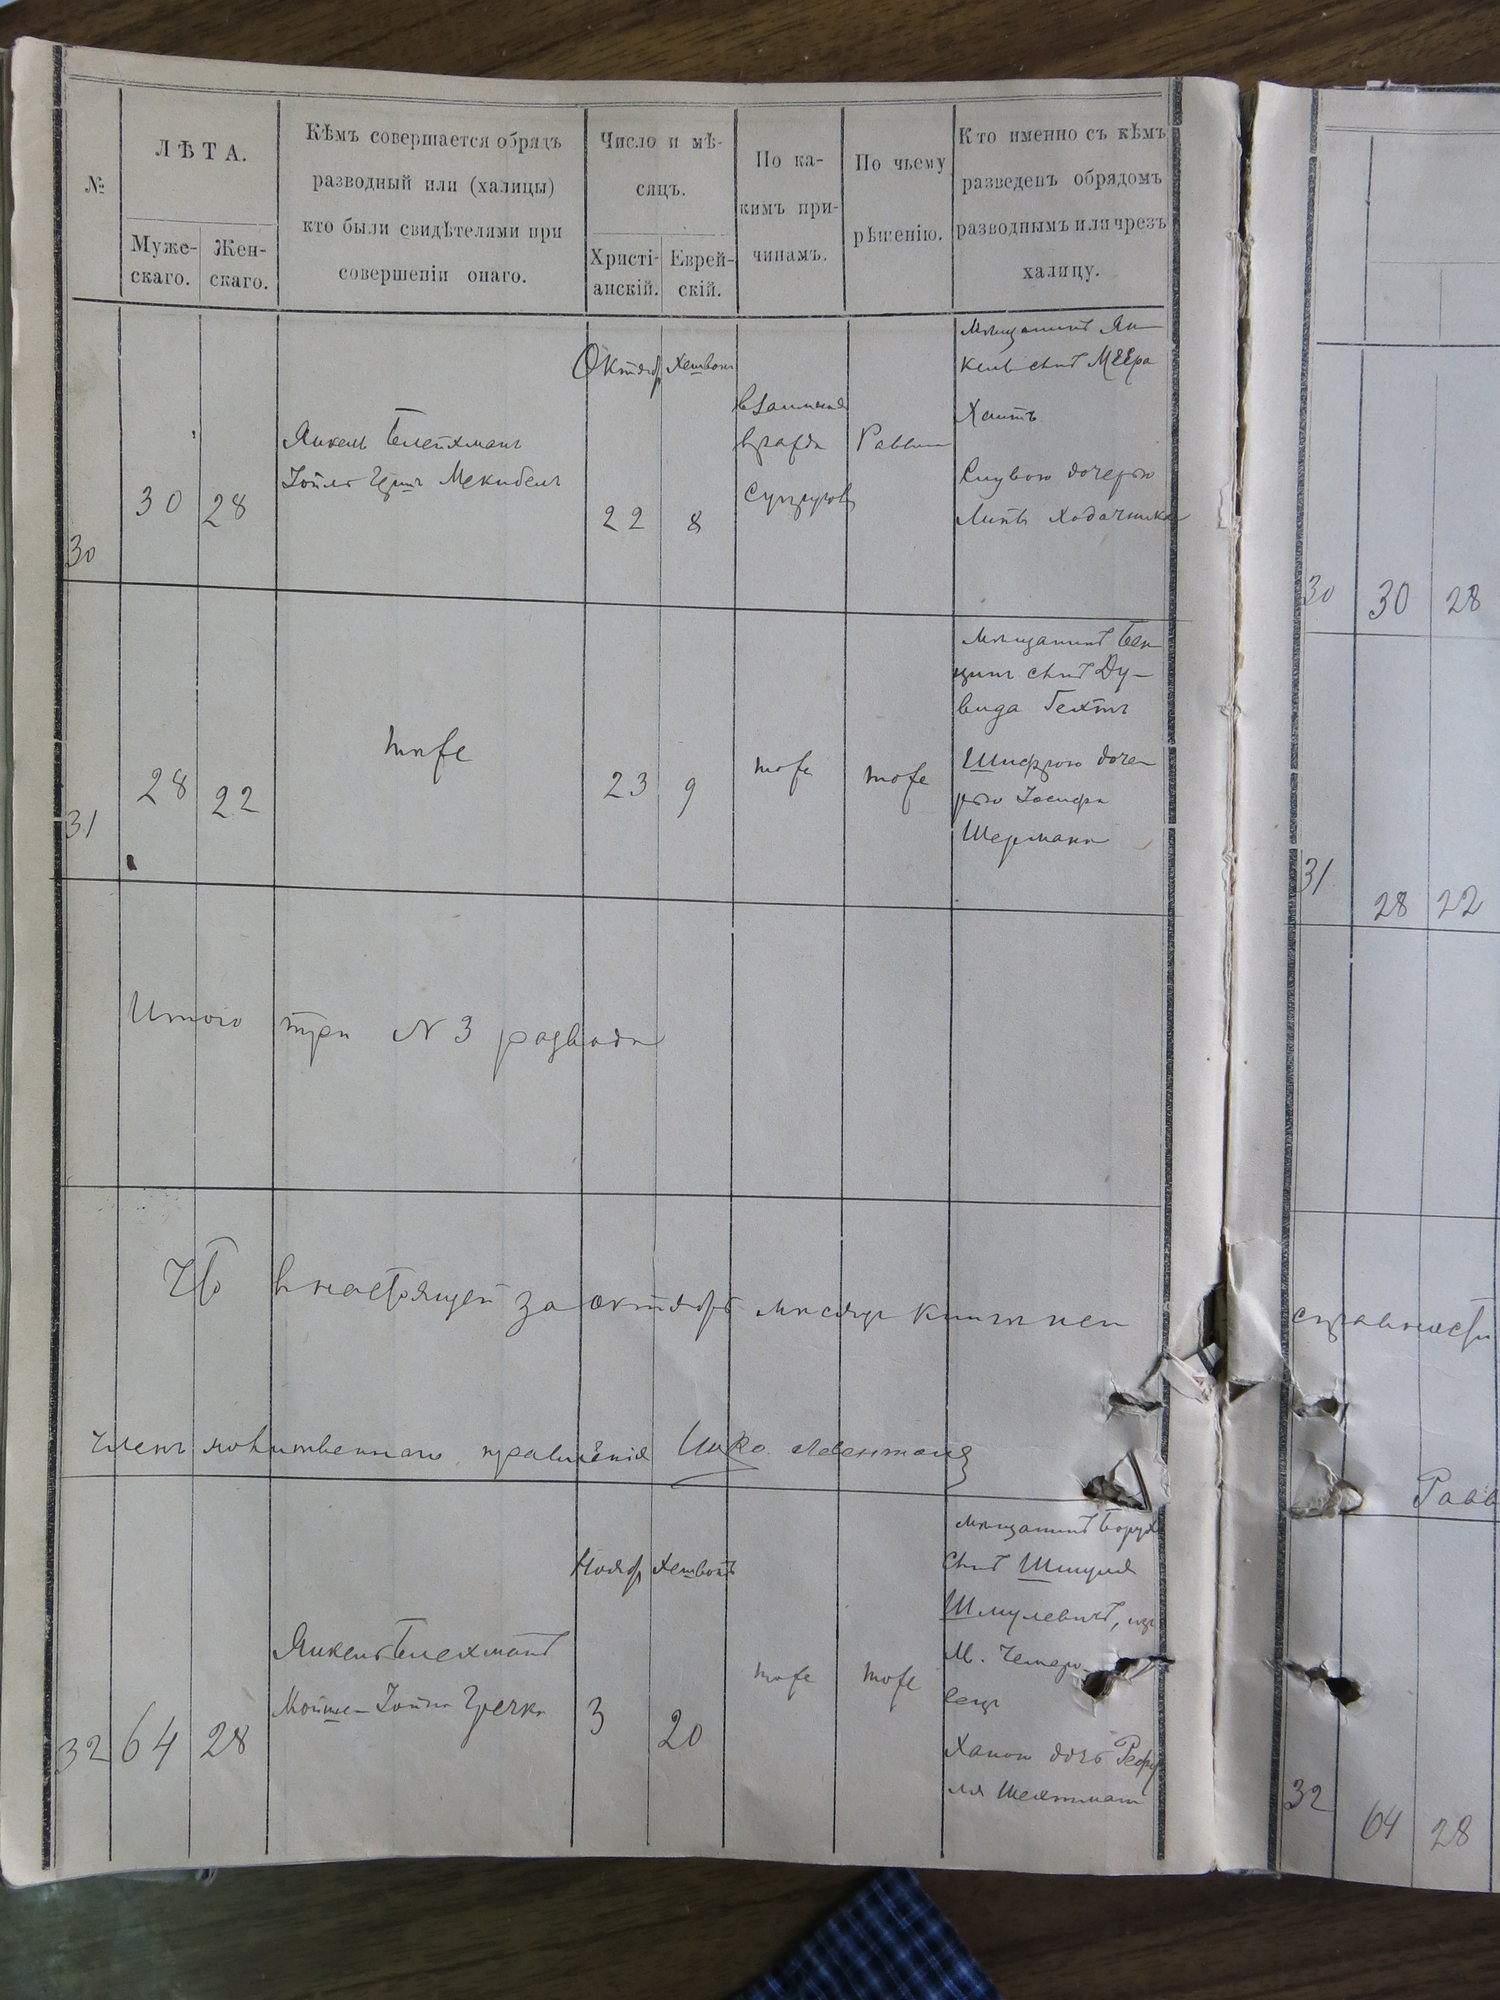 №
ЛѢТА.
Муже-
скаго.
Жен-
скаго.
Кѣмъ совершается обрядъ
разводный или (халицы)
кто были свидѣтелями при
совершеніи онаго.
Число и мѣ-
сяцъ.
Христі-
анскій.
Еврей-
скій.
По ка-
кимъ при-
чинамъ.
По чьему
рѣшенію.
Кто именно съ кѣмъ
разведенъ обрядомъ
разводнымъ или чрезъ
халицу.
30
30
28
Янкель Блейхманъ
Октяб
22
Хешвонъ
8
взаимная
вражда
супруговъ
Раввин
Мѣщанинъ Ян-
кель сынъ Меера
дочерью
Ходачника
31
28
22
тоже
23
9
тоже
тоже
Мѣщанинъ Бен
ционъ сынъ Ду-
вида Гехтъ
Шифрою доче
рью Іосифа
Шермана
Итого три N 3 развода
Что в настоящей за октябрь мѣсяцъ книги неи
Членъ молитвеннаго правленія
32
64
28
Янкель Блехманъ
Мойше-Іойна Гречка
Нояб
3
Хешвонъ
20
тоже
тоже
Мѣщанинъ Борух
сынъ Шмуля
Шмулевичъ, изъ
М. Чемеро-
вецъ
Ханою дочь Рефу
ля Шехтмана
30
30
28
31
28
22
справности
Равв
32
64
28